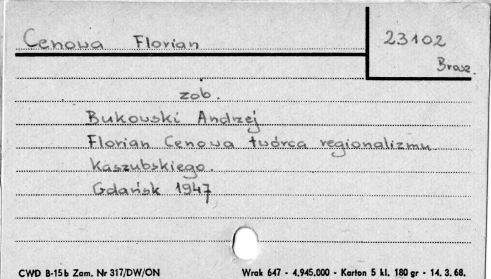 Cenowa Florian
23102
Brosz.
zob.
Bukowski Andrzej
Florian Cenowa twórca regionalizmu
Kaszubskiego.
Gdańsk 1947
CWD B-15b Zam. Nr 317/DW/ON
Wrak 647 - 4.945.000 - Karton 5 kl. 180 gr - 14. 3. 68.